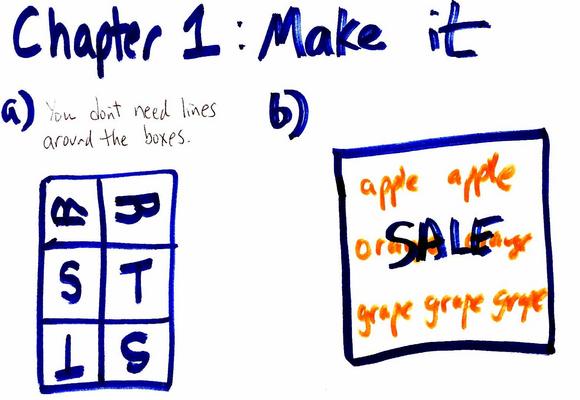 Chapter 1: Make it
a) You don't need lines
around the boxes.
b)
S T
T S
apple apple
SALE
grape grape grape